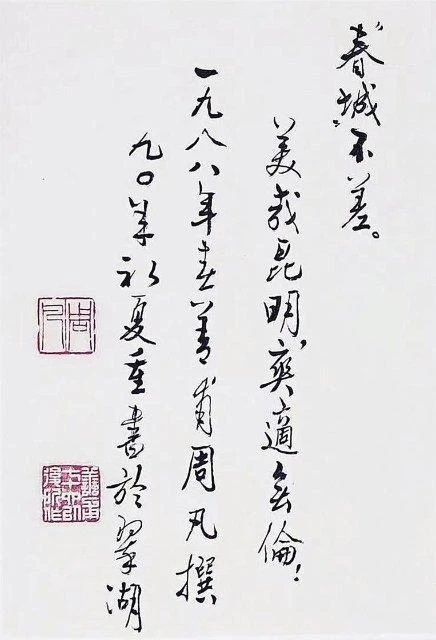 “春城”不差。
美哉昆明,爽適無倫!
一九八八年春善甫周凡撰
九〇年初夏重書於翠湖
周凡